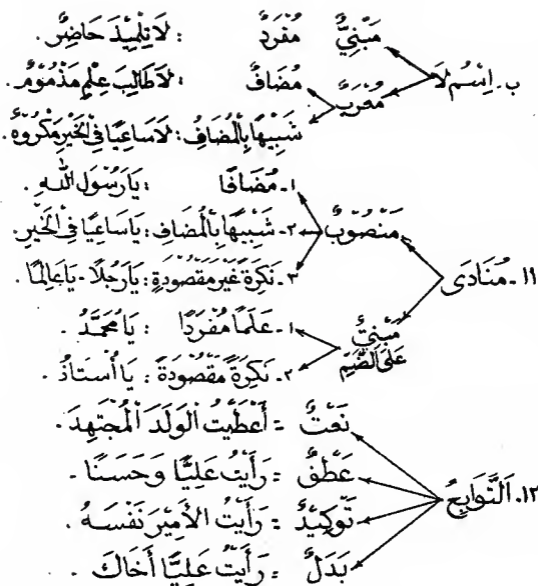 مَبْنِيٌّ مُفْرَدٌ : لَا تِلْمِيْذَ حَاضِرٌ .
ب . اِسْمُ لَا
مُعْرَبٌ مُضَافٌ : لَا طَالِبَ عِلْمٍ مَذْمُوْمٌ .
شَبِيْهًا بِالْمُضَافِ : لَا سَاعِيًا فِي الْخَيْرِ مَكْرُوْهٌ .
١ - مُضَافًا : يَا رَسُوْلَ اللهِ .
مَنْصُوْبٌ ٢ - شَبِيْهًا بِالْمُضَافِ : يَا سَاعِيًا فِي الْخَيْرِ .
٣ - نَكِرَةً غَيْرَ مَقْصُوْدَةٍ : يَا رَجُلًا - يَا عَالِمًا .
١١ - مُنَادَى
مَبْنِيٌّ عَلَى الضَّمِّ ١ - عَلَمًا مُفْرَدًا : يَا مُحَمَّدُ .
٢ - نَكِرَةً مَقْصُوْدَةً : يَا أُسْتَاذُ .
نَعْتٌ = أَعْطَيْتُ الْوَلَدَ الْمُجْتَهِدَ .
عَطْفٌ = رَأَيْتُ عَلِيًّا وَحَسَنًا .
١٢ . اَلتَّوَابِعُ
تَوْكِيْدٌ = رَأَيْتُ الْأَمِيْرَ نَفْسَهُ .
بَدَلٌ = رَأَيْتُ عَلِيًّا أَخَاكَ .